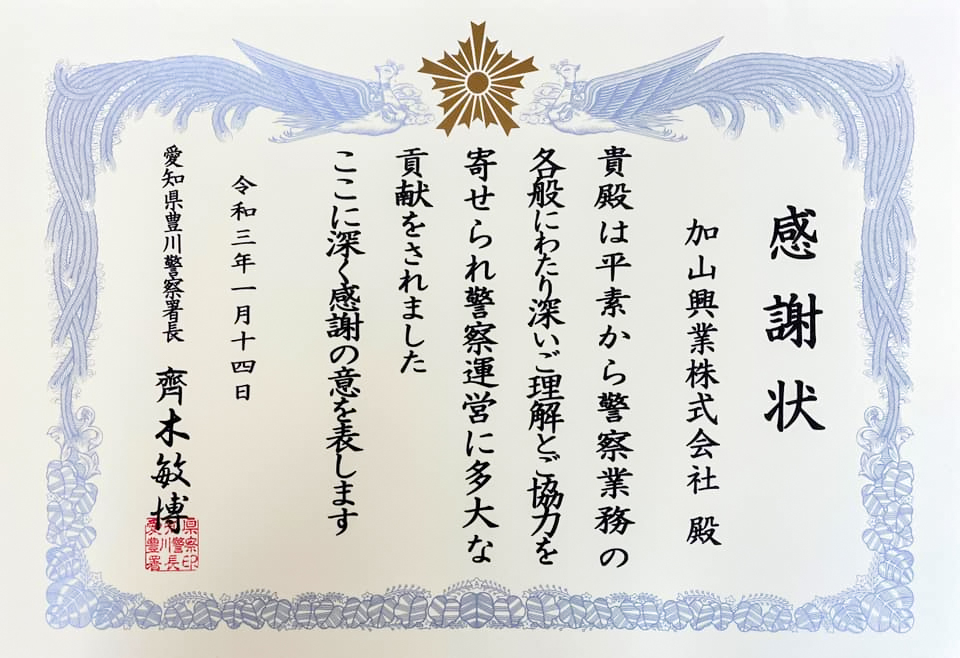 感謝状
加山興業株式会社 殿
貴殿は平素から警察業務の
各般にわたり深いご理解とご協力を
寄せられ警察運営に多大な
貢献をされました
ここに深く感謝の意を表します
令和三年一月十四日
愛知県豊川警察署長 齊木敏博
愛知県豊川警察署長印